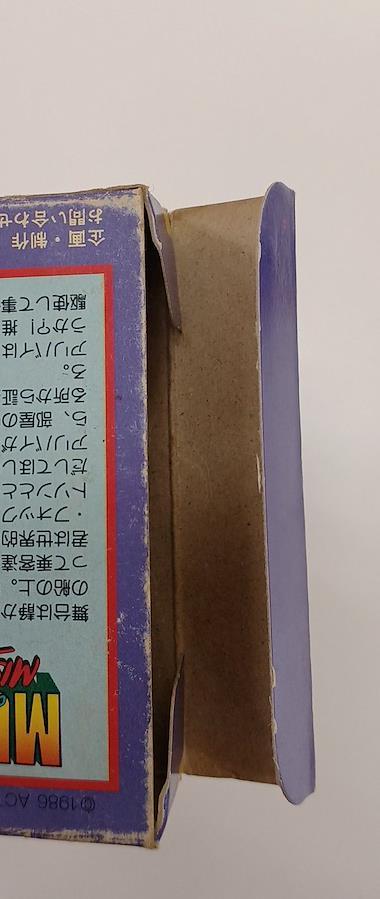 ©1986 AC
MIS
舞台は静か
の船の上。
って乗客達
君は世界的
・フォック
トソンとと
だしてほし
アリバイが
ら、部屋の
る所から証
る。
アリバイは
うか?! 推
駆使して事
企画・制作
お問い合わせ